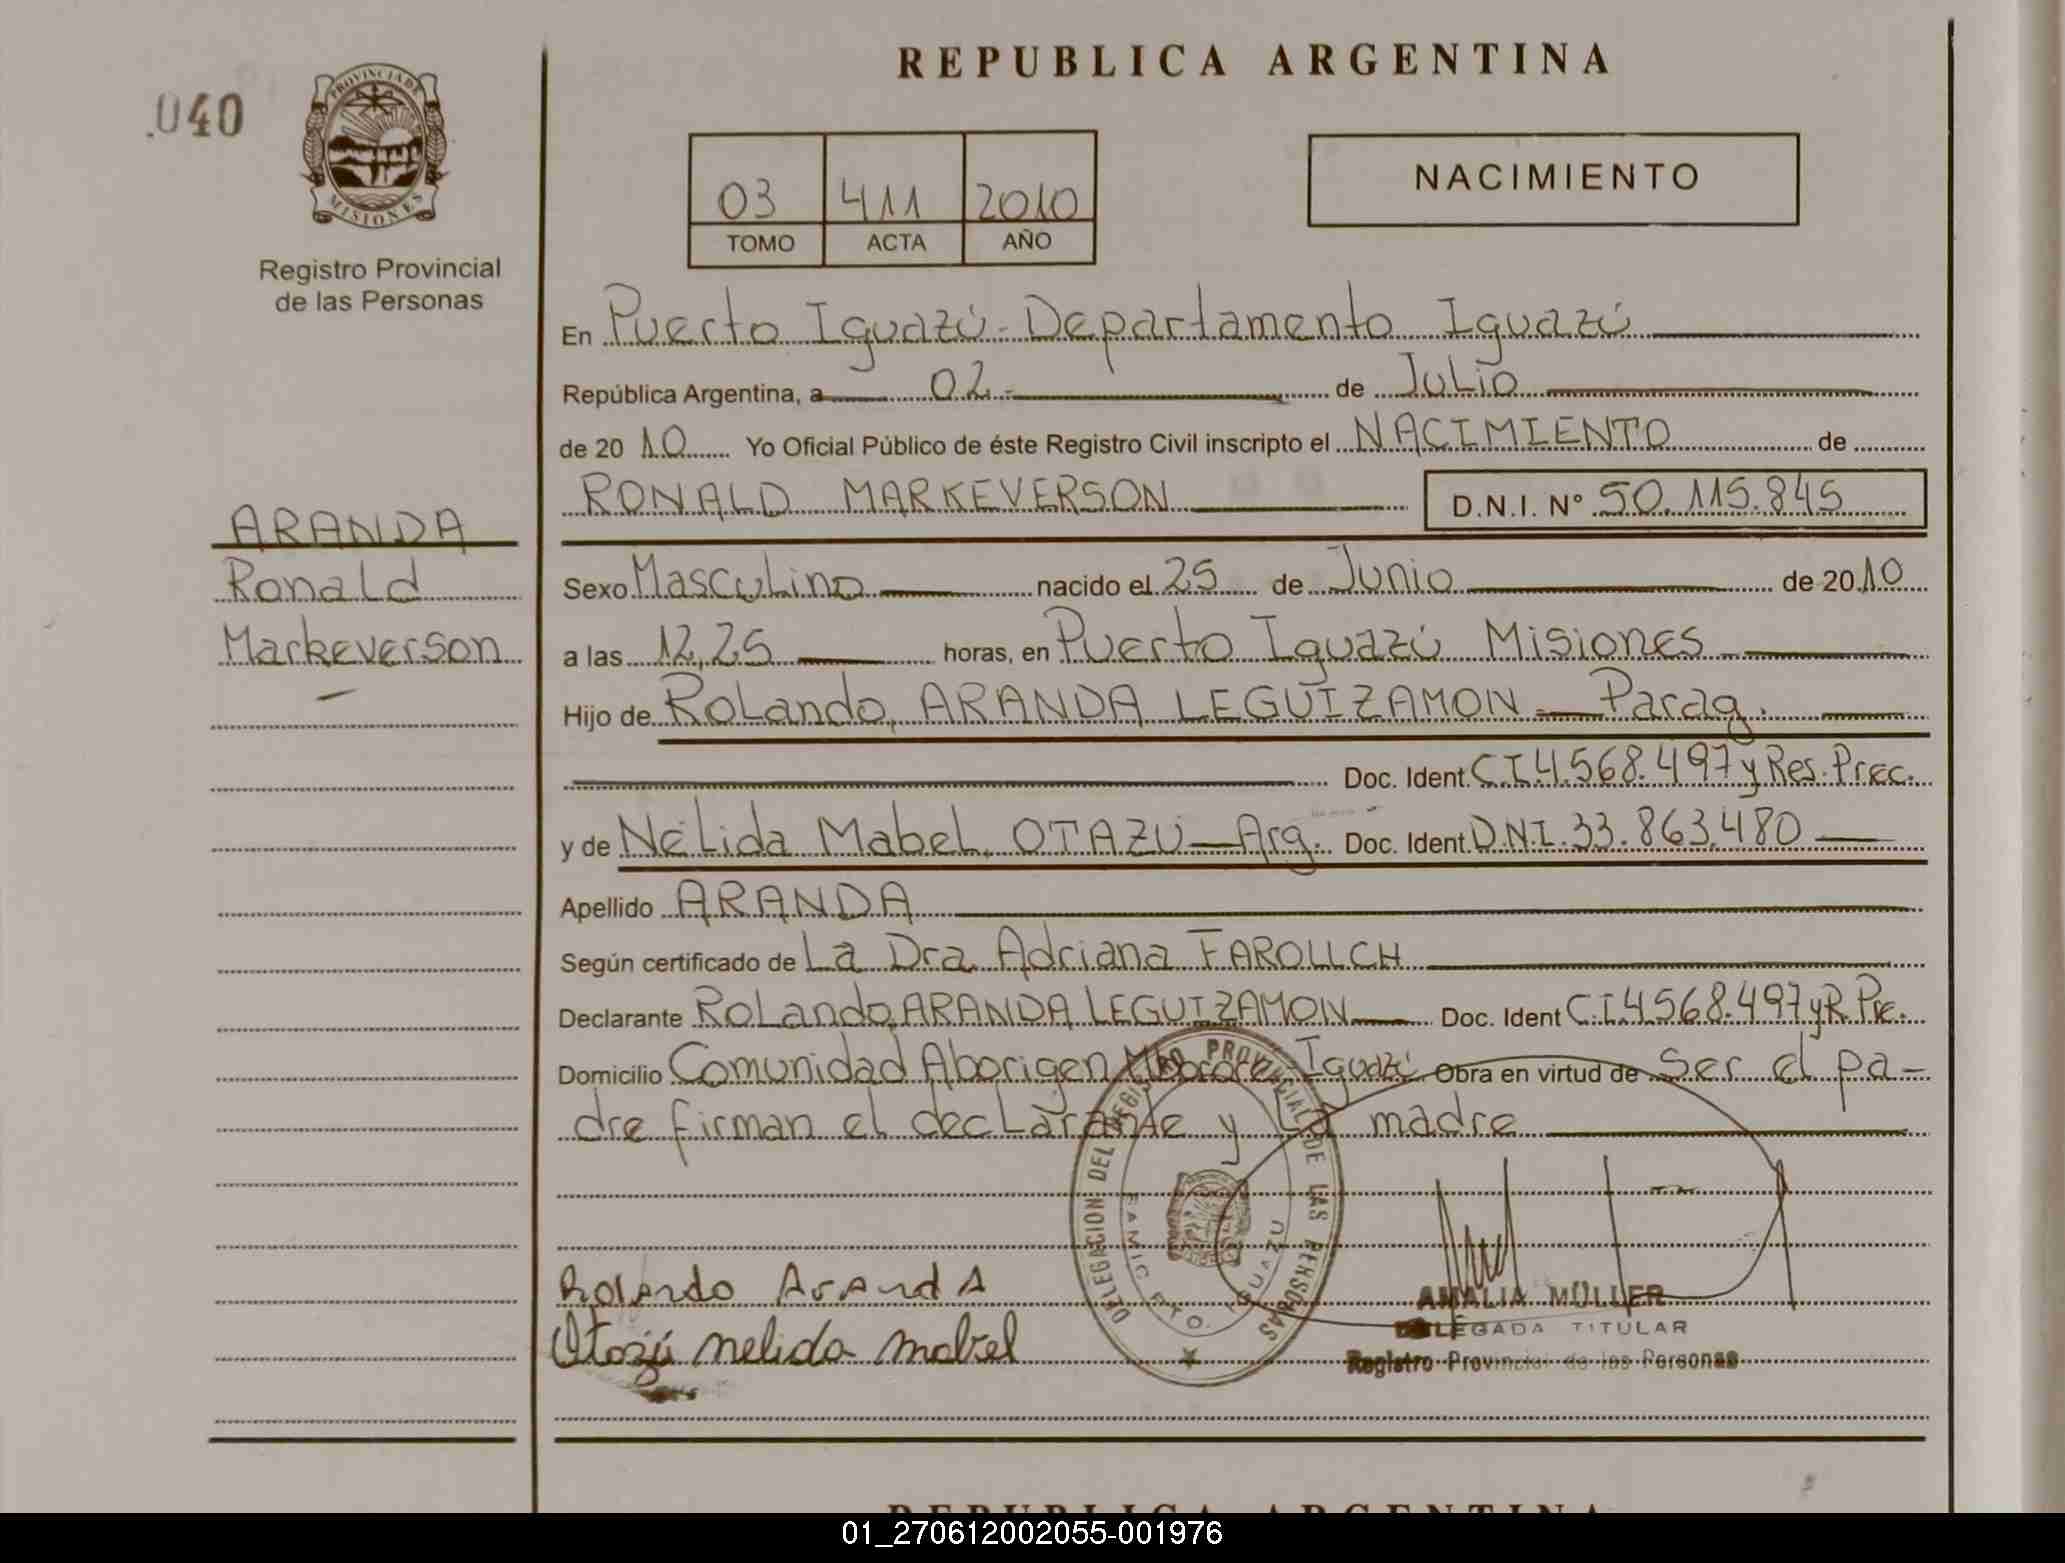 REPUBLICA ARGENTINA
.040
PROVINCIA DE
MISIONES
Registro Provincial
de las Personas
03 411 2010
TOMO ACTA AÑO
NACIMIENTO
En Puerto Iguazú - Departamento Iguazú
República Argentina, a 02 - de Julio
de 20 10 Yo Oficial Público de éste Registro Civil inscripto el NACIMIENTO de
RONALD MARKEVERSON D.N.I. Nº 50.115.845
ARANDA
Ronald
Markeverson
Sexo Masculino nacido el 25 de Junio de 2010
a las 12,25 horas, en Puerto Iguazú Misiones
Hijo de Rolando, ARANDA LEGUIZAMON - Parag.
Doc. Ident. C.I.4.568.497 y Res. Prec.
y de Nélida Mabel, OTAZÚ - Arg. Doc. Ident. D.N.I. 33.863.480
Apellido ARANDA
Según certificado de La Dra. Adriana
Declarante Rolando, ARANDA LEGUIZAMON Doc. Ident C.I.4.568.497 y R. Pre.
Domicilio Comunidad Aborigen Iguazú Obra en virtud de Ser el pa-
dre firman el declarante y La madre
DELEGACION DEL REGISTRO PROVINCIAL DE LAS PERSONAS
DTO. IGUAZU
Rolando Aranda
Otazú nelida mabel
AMALIA MÜLLER
DELEGADA TITULAR
Registro Provincial de las Personas
REPUBLICA ARGENTINA
01_270612002055-001976